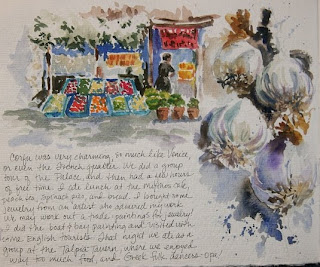 Corfu was very charming, so much like Venice,
or even the French quarter. We did a group
tour of the Palace, and then had a few hours
of free time. I ate lunch at the
spinach pies, and bread. I bought some
jewelry from an artist who we
may work out a trade paintings for jewelry!
I did the boat & bay painting and visited with
some English tourists. That night we ate as a
group at the Taverna, where we enjoyed
way too much food and Greek folk dancers - opa!